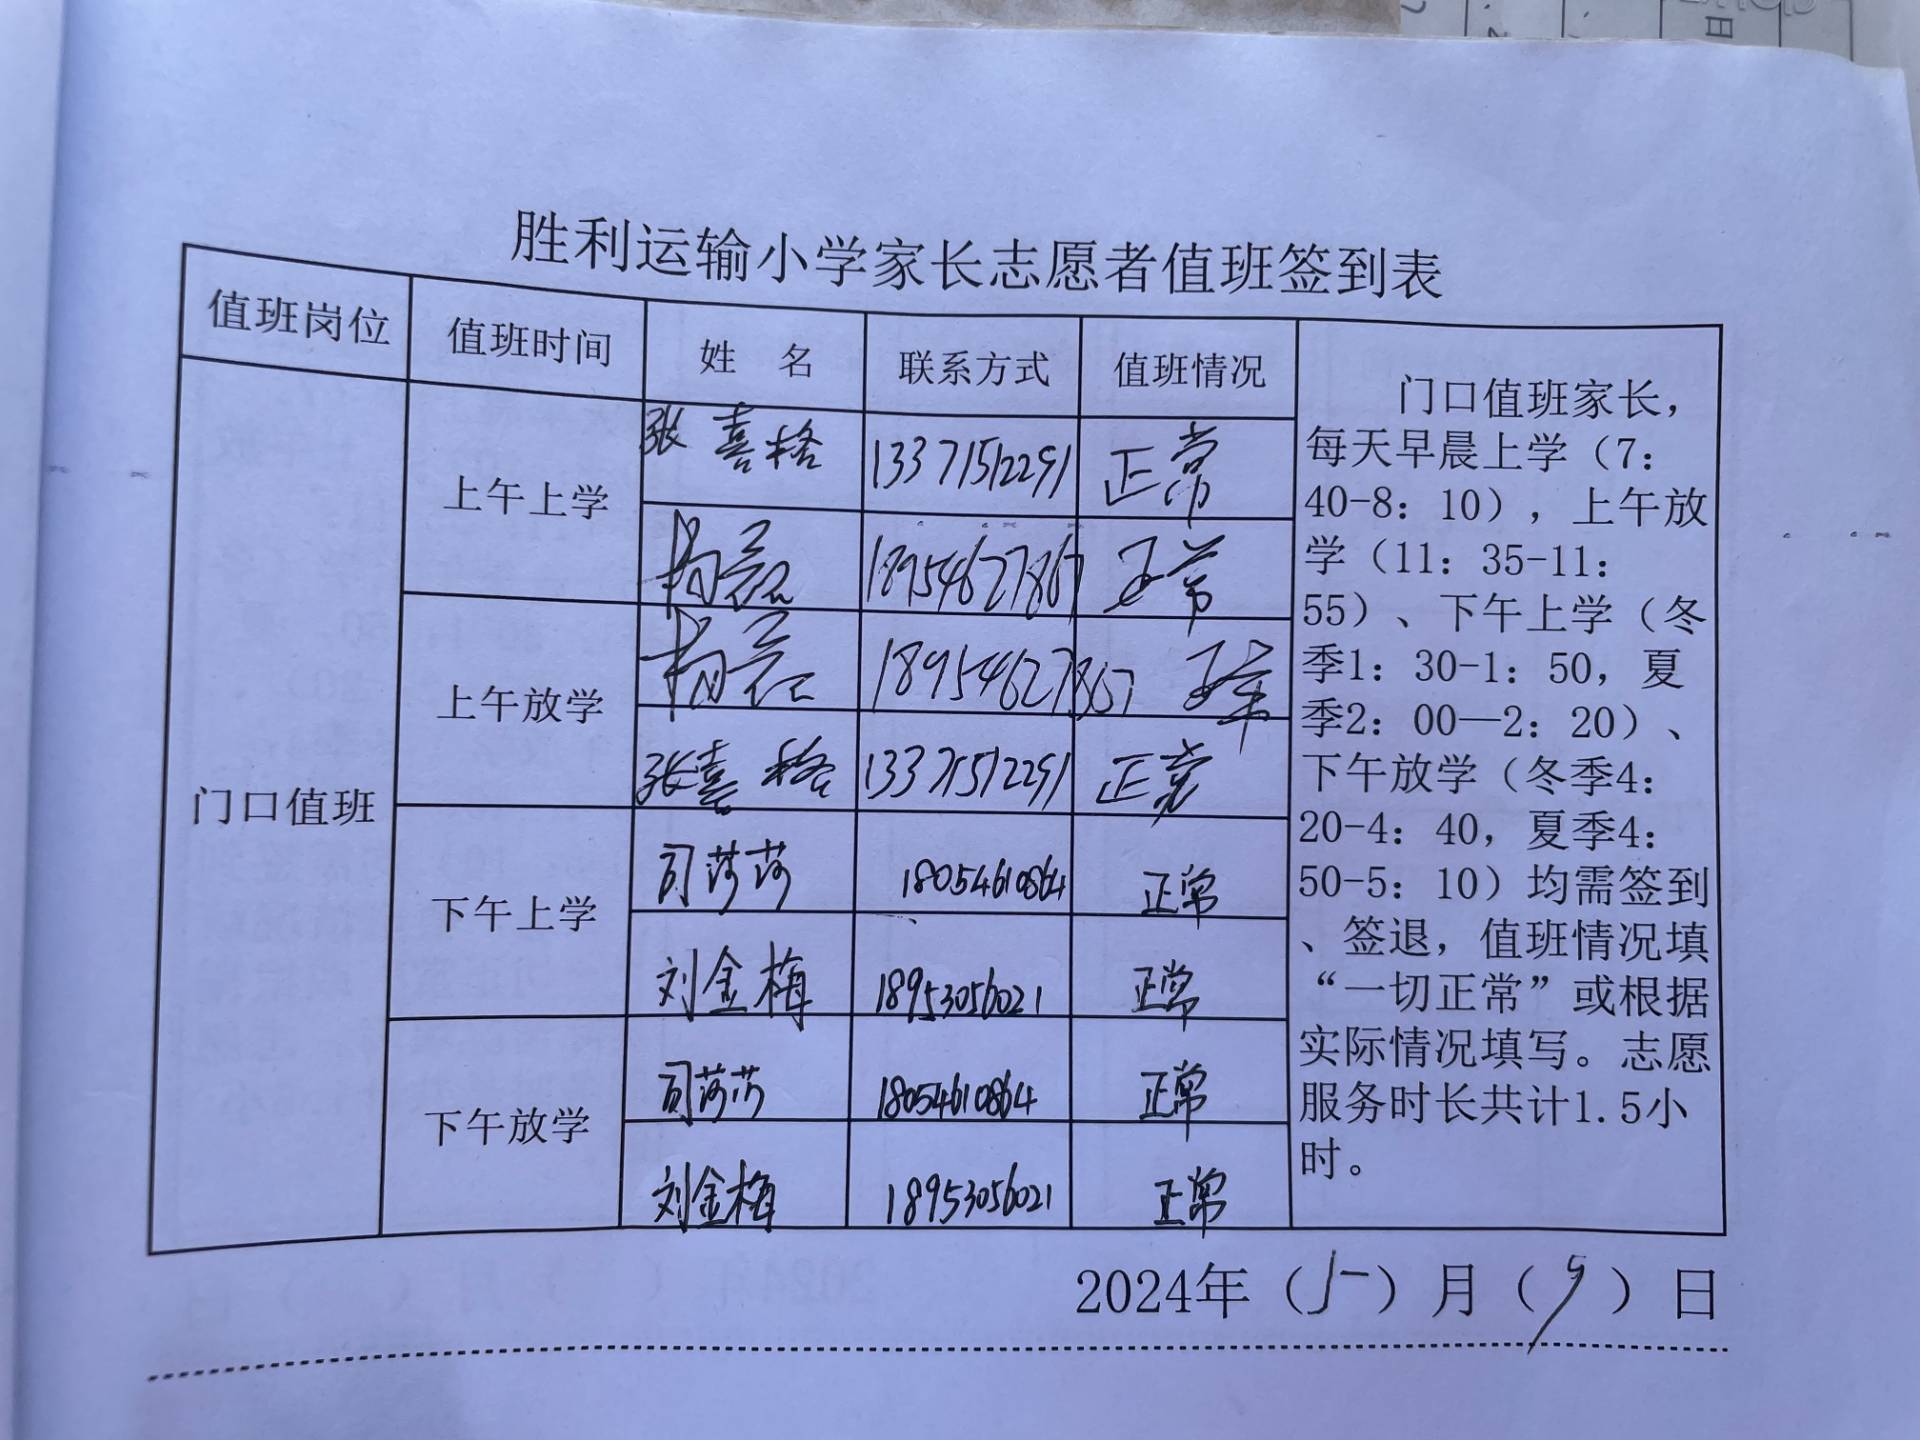 胜利运输小学家长志愿者值班签到表
值班岗位 值班时间 姓 名 联系方式 值班情况
门口值班
上午上学
张喜格 13371512291 正常
杨磊 18954627867 正常
上午放学
杨磊 18954627867 正常
张喜格 13371512291 正常
下午上学
司莎莎 18054610864 正常
刘金梅 18953056021 正常
下午放学
司莎莎 18054610864 正常
刘金梅 18953056021 正常
门口值班家长，
每天早晨上学（7：
40-8：10），上午放
学（11：35-11：
55）、下午上学（冬
季1：30-1：50，夏
季2：00—2：20）、
下午放学（冬季4：
20-4：40，夏季4：
50-5：10）均需签到
、签退，值班情况填
“一切正常”或根据
实际情况填写。志愿
服务时长共计1.5小
时。
2024年（5）月（9）日